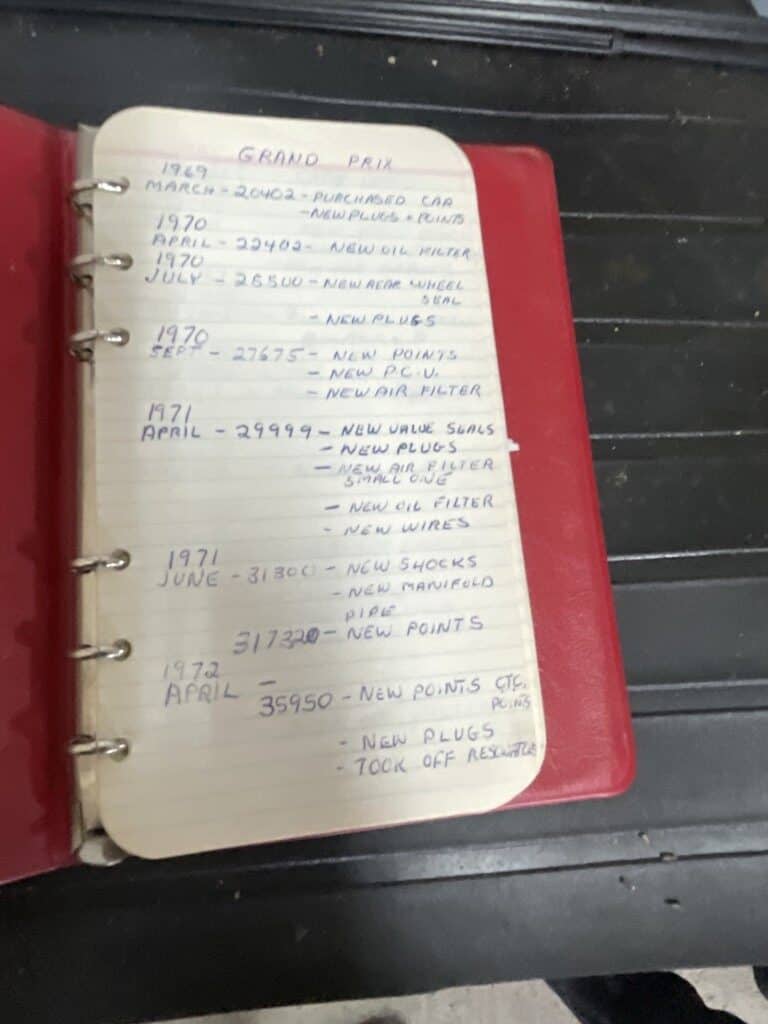 GRAND PRIX
1969
MARCH - 20402 - PURCHASED CAR
- NEW PLUGS + POINTS
1970
APRIL - 22402 - NEW OIL FILTER
1970
JULY - 26500 - NEW REAR WHEEL
SEAL
- NEW PLUGS
1970
SEPT - 27675 - NEW POINTS
- NEW P.C.V.
- NEW AIR FILTER
1971
APRIL - 29999 - NEW VALVE SEALS
- NEW PLUGS
- NEW AIR FILTER
SMALL ONE
- NEW OIL FILTER
- NEW WIRES
1971
JUNE - 31300 - NEW SHOCKS
- NEW MANIFOLD
PIPE
- NEW POINTS
1972
APRIL -
35950 - NEW POINTS
POINTS
- NEW PLUGS
- TOOK OFF RESONATOR